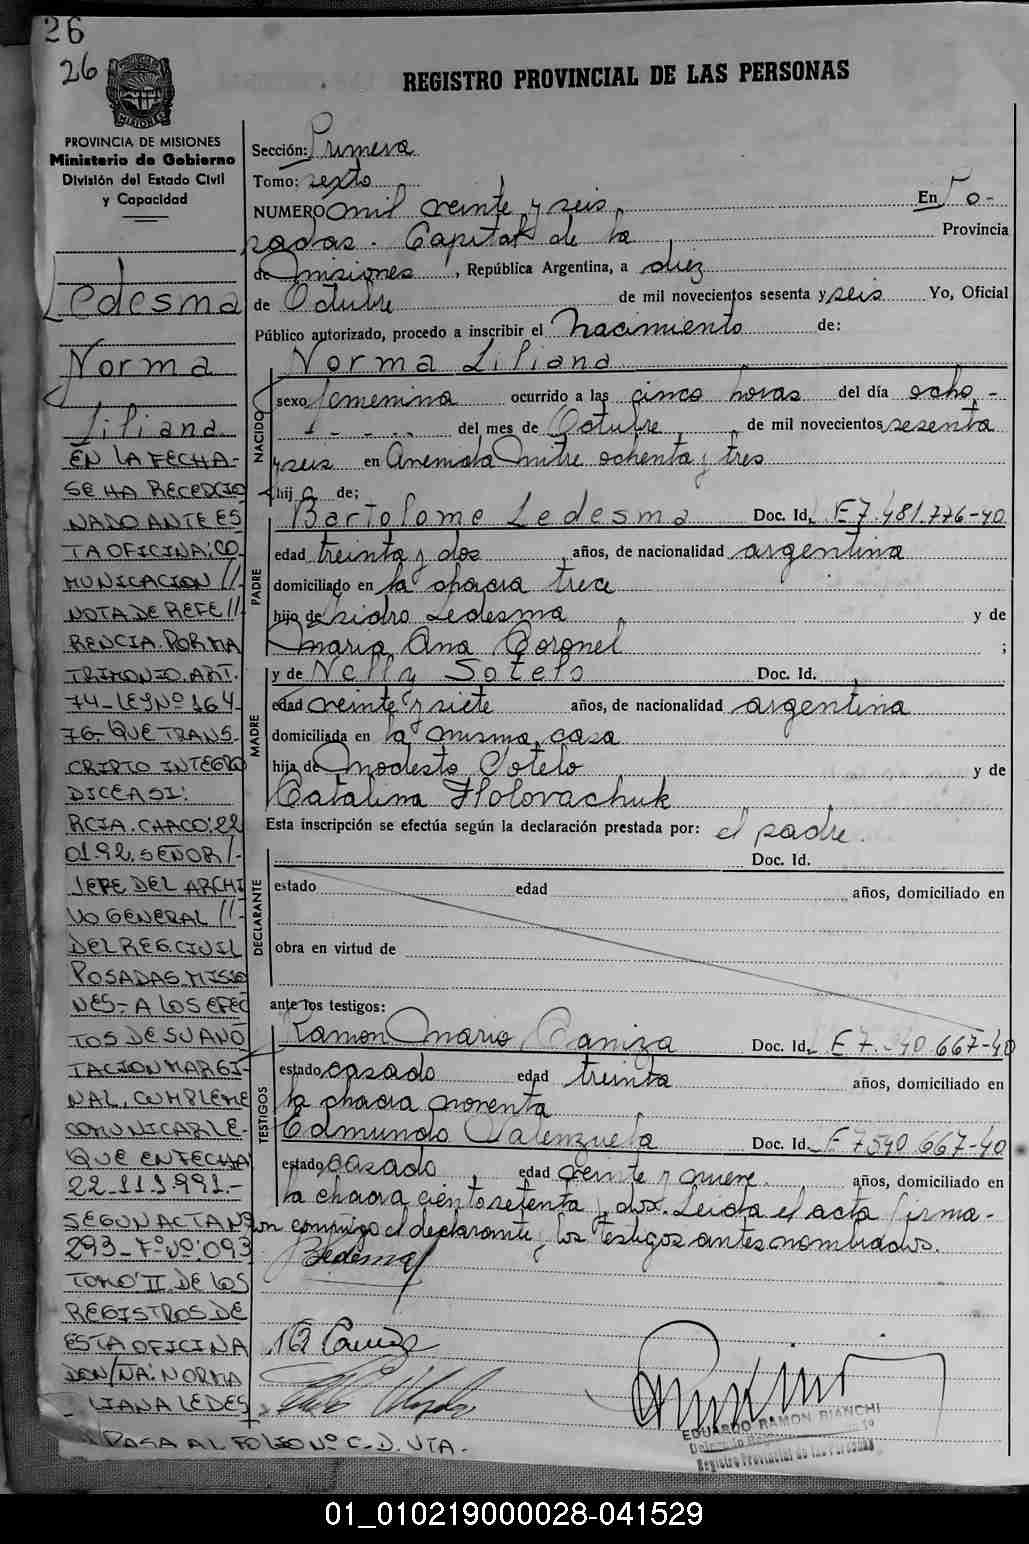 26
26
REGISTRO PROVINCIAL DE LAS PERSONAS
MISIONES
PROVINCIA DE MISIONES
Ministerio de Gobierno
División del Estado Civil
y Capacidad
Sección: Primera
Tomo: sexto
NUMERO mil veinte y seis En Po-
sadas. Capital de la Provincia
de Misiones, República Argentina, a diez
de Octubre de mil novecientos sesenta y seis Yo, Oficial
Público autorizado, procedo a inscribir el Nacimiento de:
Norma Liliana
NACIDO
sexo femenina ocurrido a las cinco horas del día ocho.-
del mes de Octubre de mil novecientos sesenta
y seis en Avenida Mitre ochenta y tres
hija de;
Bartolome Ledesma Doc. Id. E 7.481.776-40
PADRE
edad treinta y dos años, de nacionalidad argentina
domiciliado en la chacra trece
hijo de Isidro Ledesma y de
Maria Ana Coronel ;
y de Nelly Sotelo Doc. Id.
MADRE
edad veinte y siete años, de nacionalidad argentina
domiciliada en la misma casa
hija de Modesto Sotelo y de
Catalina Holovachuk
Esta inscripción se efectúa según la declaración prestada por: el padre.
Doc. Id.
DECLARANTE
estado edad años, domiciliado en
obra en virtud de
ante los testigos:
Ramon Mario Caniza Doc. Id. E 7.540.667-40
TESTIGOS
estado casado edad treinta años, domiciliado en
la chacra noventa
Edmundo Valenzuela Doc. Id. E 7540.667-40
estado casado edad veinte y nueve años, domiciliado en
la chacra ciento setenta y dos. Leida el acta firma-
ron conmigo el declarante y los testigos antes nombrados.
BLedesma
EDUARDO RAMON BIANCHI
Registro Provincial de las Personas
Ledesma
Norma
Liliana
EN LA FECHA-
SE HA RECEPCIO
NADO ANTE ES
TA OFICINA: CO-
MUNICACION //-
NOTA DE REFE //-
RENCIA POR MA
TRIMONIO. ART.
74- LEY Nº 164
76- QUE TRANS
CRIPTO INTEGRO
DICE ASI:
PCIA. CHACO: 22
01.92. SEÑOR /-
JEFE DEL ARCHI
VO GENERAL //-
DEL REG. CIVIL
POSADAS. MISIO
NES- A LOS EFEC
TOS DE SU ANO
TACION MARGI-
NAL, CUMPLEME
COMUNICARLE-
QUE EN FECHA
22.11.1991.-
SEGUN ACTA Nº
293- Fº Nº: 093
TOMO II DE LOS
REGISTROS DE
ESTA OFICINA
DON/ÑA: NORMA
LIANA LEDES
PASA AL FOLIO Nº C. D. VTA.-
01_010219000028-041529